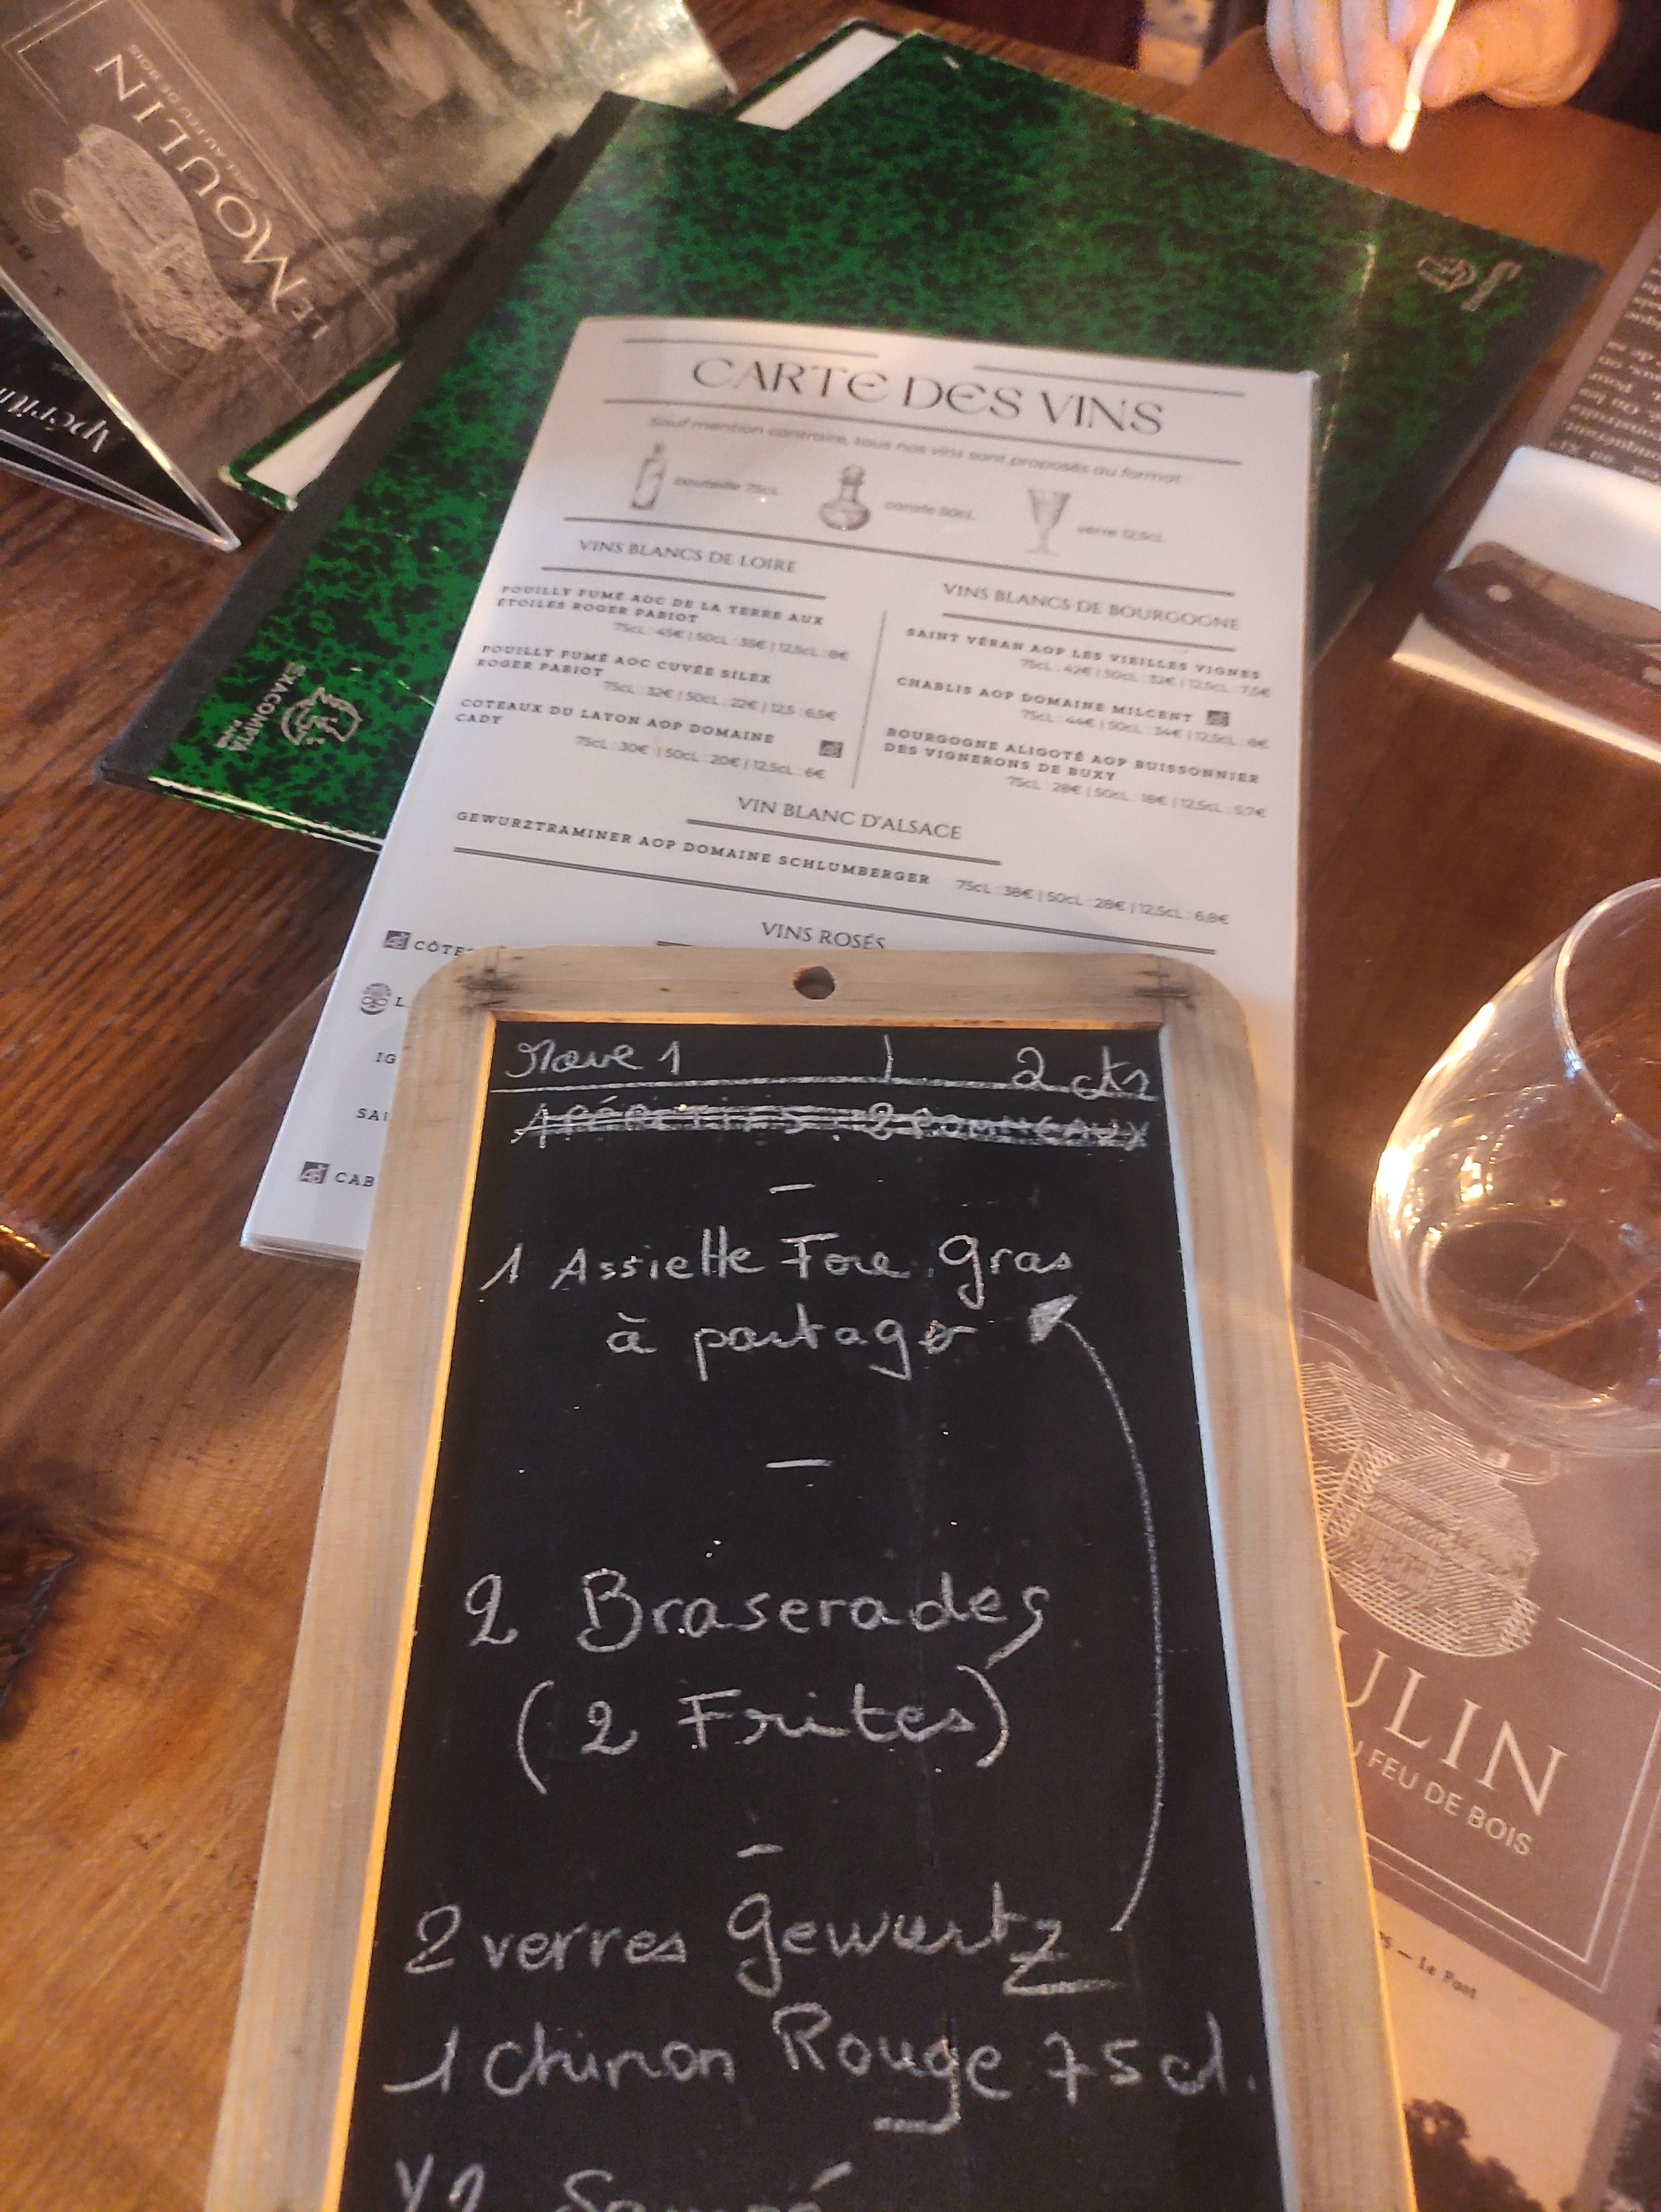 LE MOULIN
GRILL AU FEU DE BOIS
Apéritif
EXACOMPTA
PARIS
CARTE DES VINS
Sauf mention contraire, tous nos vins sont proposés au format :
bouteille 75cL
carafe 50cL
verre 12,5cL
VINS BLANCS DE LOIRE
POUILLY FUMÉ AOC DE LA TERRE AUX
ÉTOILES ROGER PABIOT
75cL : 45€ | 50cL : 35€ | 12,5cL : 8€
POUILLY FUMÉ AOC CUVÉE SILEX
ROGER PABIOT
75cL : 32€ | 50cL : 22€ | 12,5 : 6,5€
COTEAUX DU LAYON AOP DOMAINE
CADY
AB
75cL : 30€ | 50cL : 20€ | 12,5cL : 6€
VINS BLANCS DE BOURGOGNE
SAINT VÉRAN AOP LES VIEILLES VIGNES
75cL : 42€ | 50cL : 32€ | 12,5cL : 7,5€
CHABLIS AOP DOMAINE MILCENT AB
75cL : 44€ | 50cL : 34€ | 12,5cL : 8€
BOURGOGNE ALIGOTÉ AOP BUISSONNIER
DES VIGNERONS DE BUXY
75cL : 28€ | 50cL : 18€ | 12,5cL : 5,7€
VIN BLANC D'ALSACE
GEWURZTRAMINER AOP DOMAINE SCHLUMBERGER 75cL : 38€ | 50cL : 28€ | 12,5cL : 6,8€
VINS ROSÉS
AB CÔTES
L
IG
SAI
AB CAB
2 cts
1 Assiette Foie gras
à partager
2 Braserades
(2 Frites)
2 verres gewurtz
1 chinon Rouge 75 cl.
ULIN
U FEU DE BOIS
Le Pont